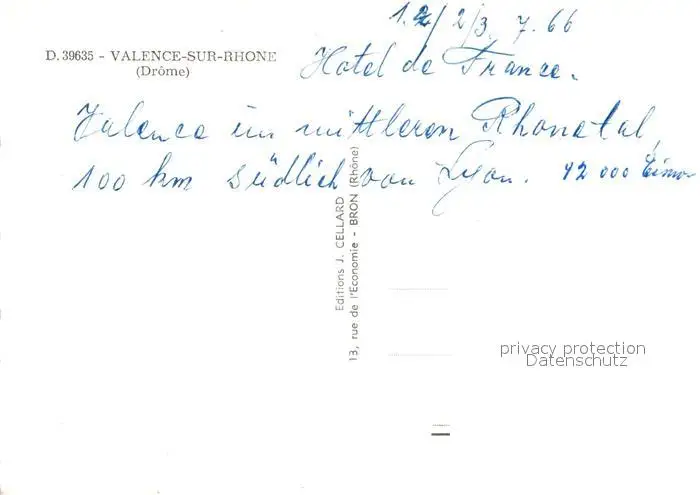 1.2/2/3. 7. 66
D. 39635 - VALENCE-SUR-RHONE
(Drôme)
Hotel de France.
Valence im mittleren Rhonetal,
100 km südlich von Lyon. 42 000 Einwo
Editions J. CELLARD
13, rue de l'Economie - BRON (Rhône)
privacy protection
Datenschutz